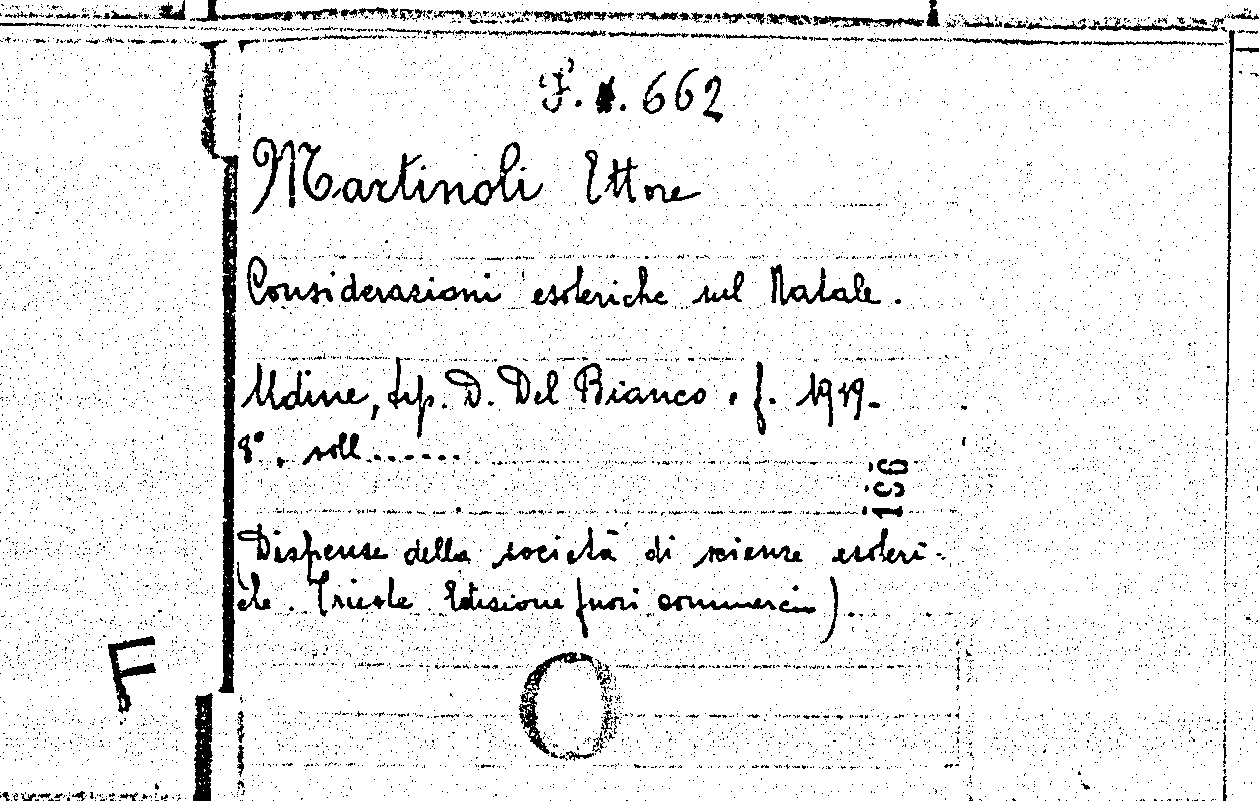 F. 1. 662
Martinoli Ettore
Considerazioni esoteriche sul Natale.
Udine, tip. D. Del Bianco e f. 1919.
8°. soll......
196
Dispense della società di scienze esoteri-
che. Trieste Edizione fuori commercio).
F
O